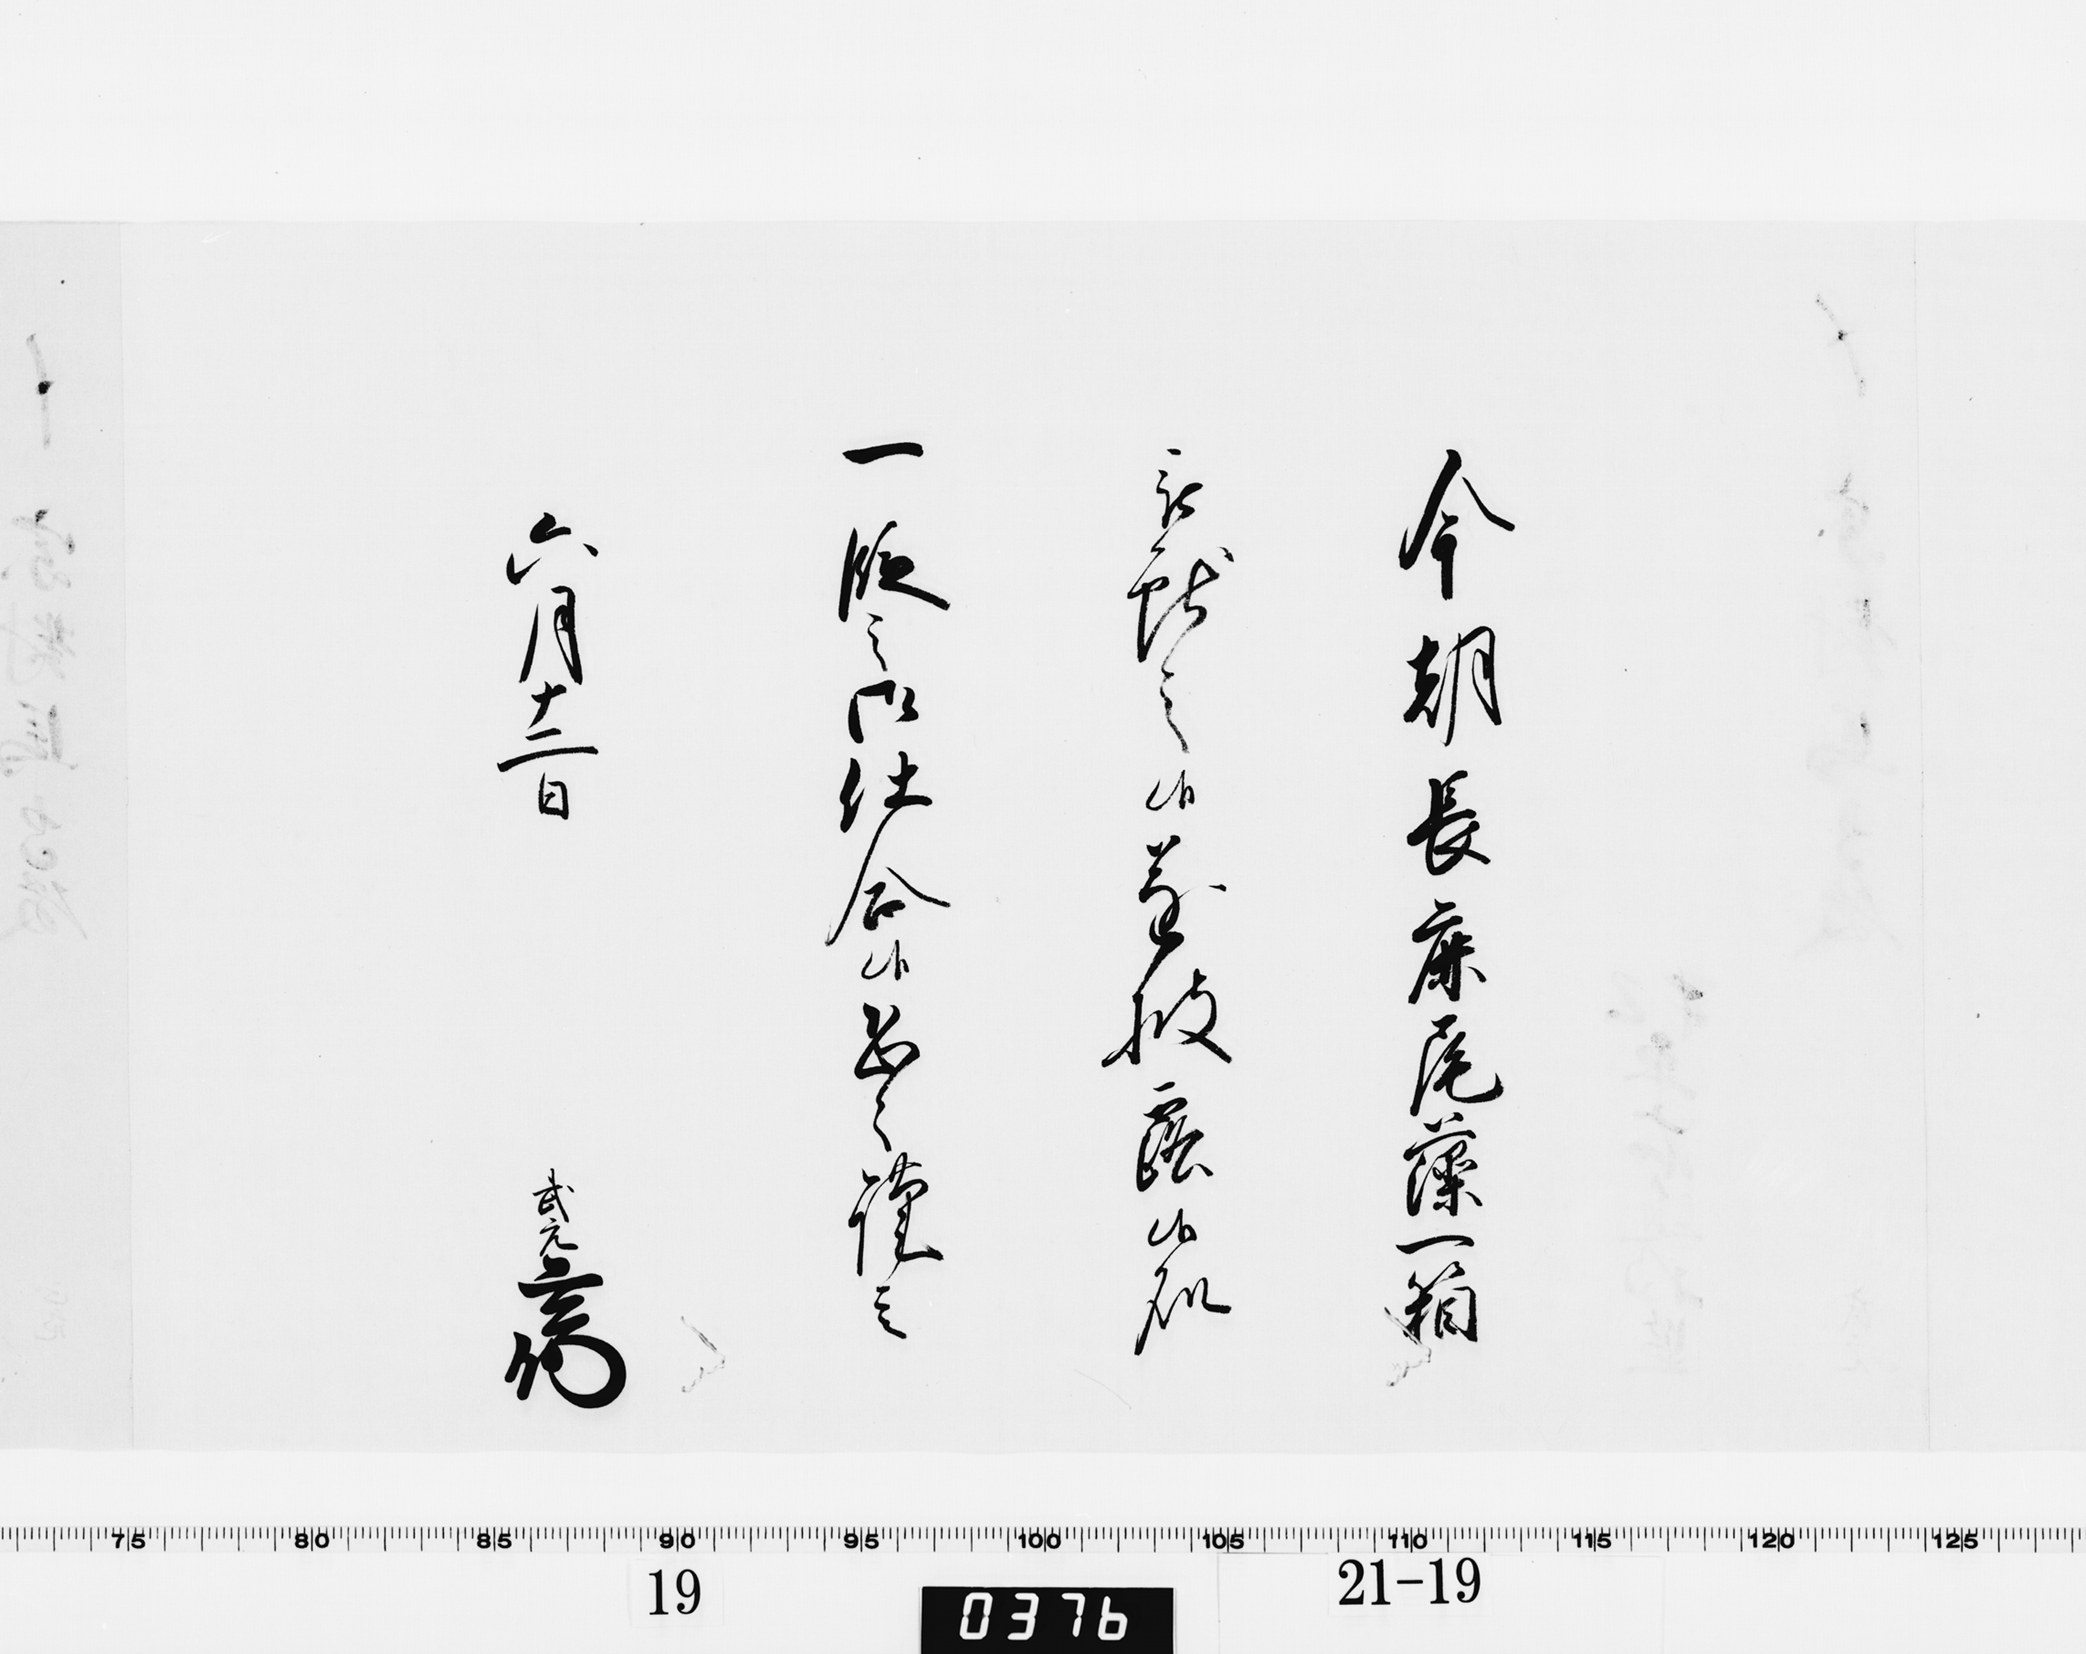 今朝長鹿尾藻一箱
被献之候首尾能披露候処
一段之御仕合候恐々謹言
六月十二日
武元
75 80 85 90 95 100 105 110 115 120 125
19
0376
21-19